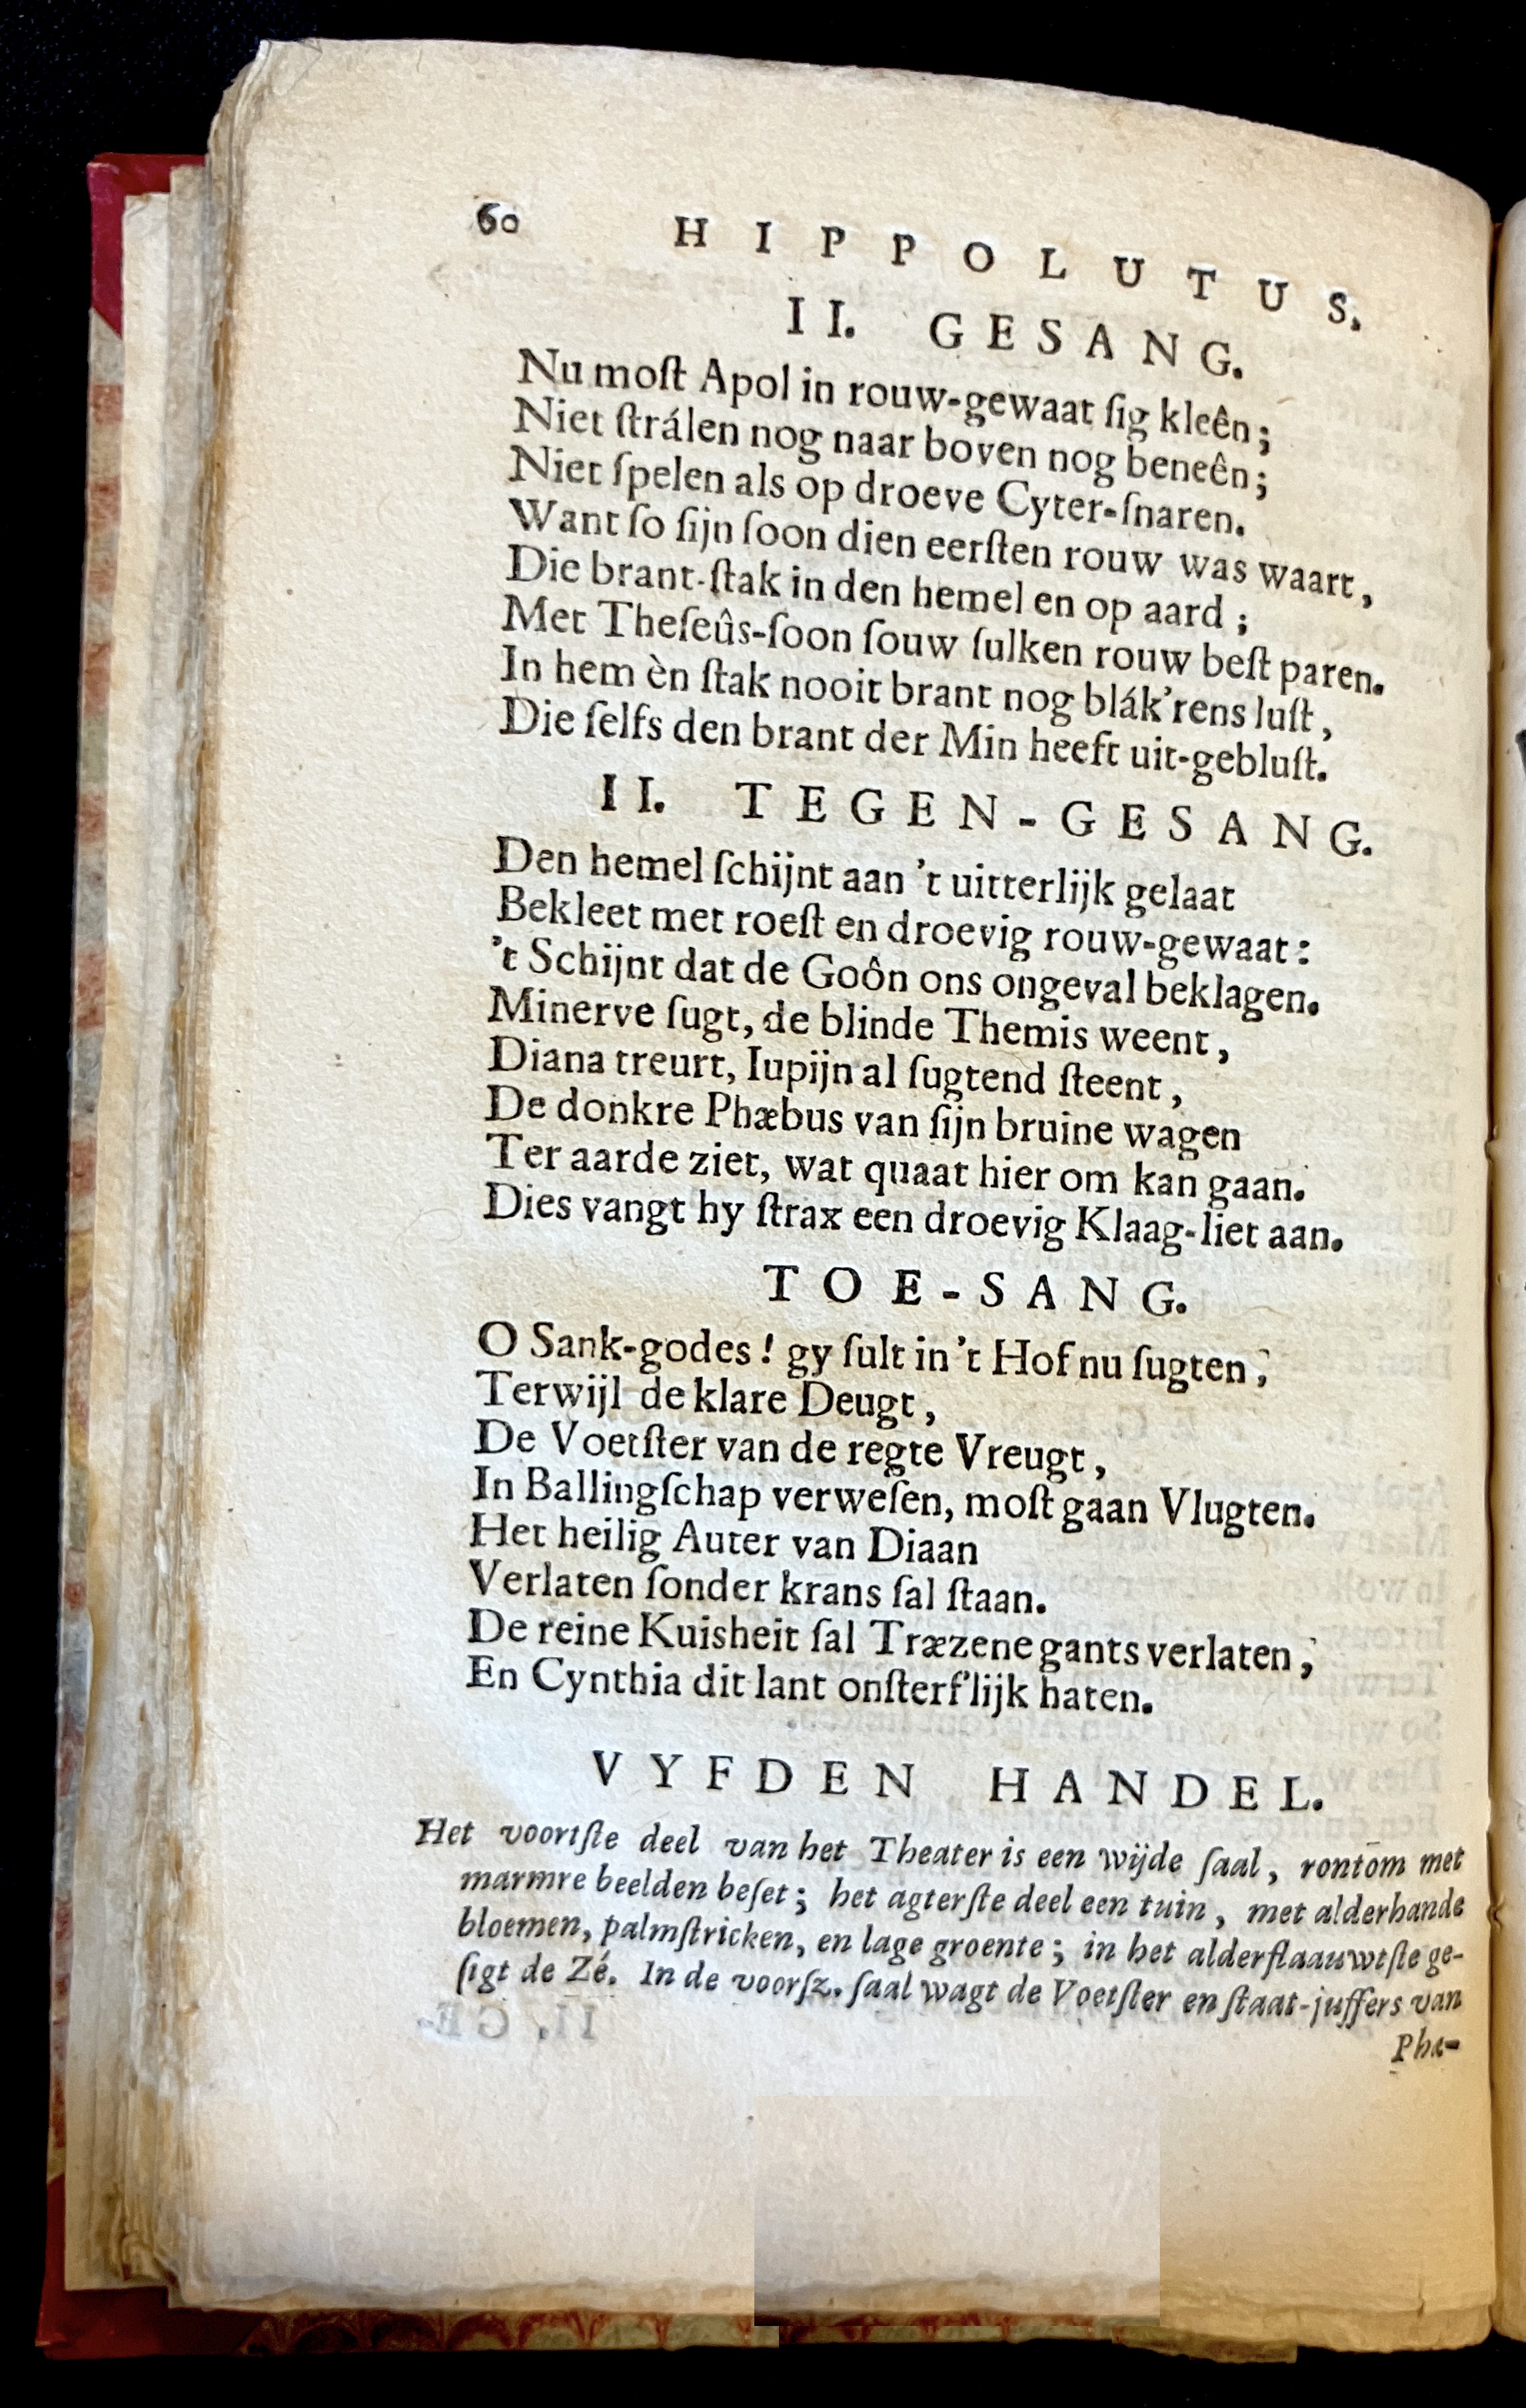 60 HIPPOLUTUS.
II. GESANG.
Nu moſt Apol in rouw-gewaat ſig kleên;
Niet ſtrálen nog naar boven nog beneên;
Niet ſpelen als op droeve Cyter-ſnaren.
Want ſo ſijn ſoon dien eerſten rouw was waart,
Die brant-ſtak in den hemel en op aard;
Met Theſeûs-ſoon ſouw ſulken rouw beſt paren.
In hem èn ſtak nooit brant nog blák'rens luſt,
Die ſelfs den brant der Min heeft uit-gebluſt.
II. TEGEN-GESANG.
Den hemel ſchijnt aan 't uitterlijk gelaat
Bekleet met roeſt en droevig rouw-gewaat:
't Schijnt dat de Goôn ons ongeval beklagen.
Minerve ſugt, de blinde Themis weent,
Diana treurt, Iupijn al ſugtend ſteent,
De donkre Phæbus van ſijn bruine wagen
Ter aarde ziet, wat quaat hier om kan gaan.
Dies vangt hy ſtrax een droevig Klaag-liet aan.
TOE-SANG.
O Sank-godes! gy ſult in 't Hof nu ſugten,
Terwijl de klare Deugt,
De Voetſter van de regte Vreugt,
In Ballingſchap verweſen, moſt gaan Vlugten.
Het heilig Auter van Diaan
Verlaten ſonder krans ſal ſtaan.
De reine Kuisheit ſal Træzene gants verlaten,
En Cynthia dit lant onſterf'lijk haten.
VYFDEN HANDEL.
Het voortſte deel van het Theater is een wijde ſaal, rontom met
marmre beelden beſet; het agterſte deel een tuin, met alderhande
bloemen, palmſtricken, en lage groente; in het alderflaauwtſte ge-
ſigt de Zé. In de voorſz. ſaal wagt de Voetſter en ſtaat-juffers van
Phæ-